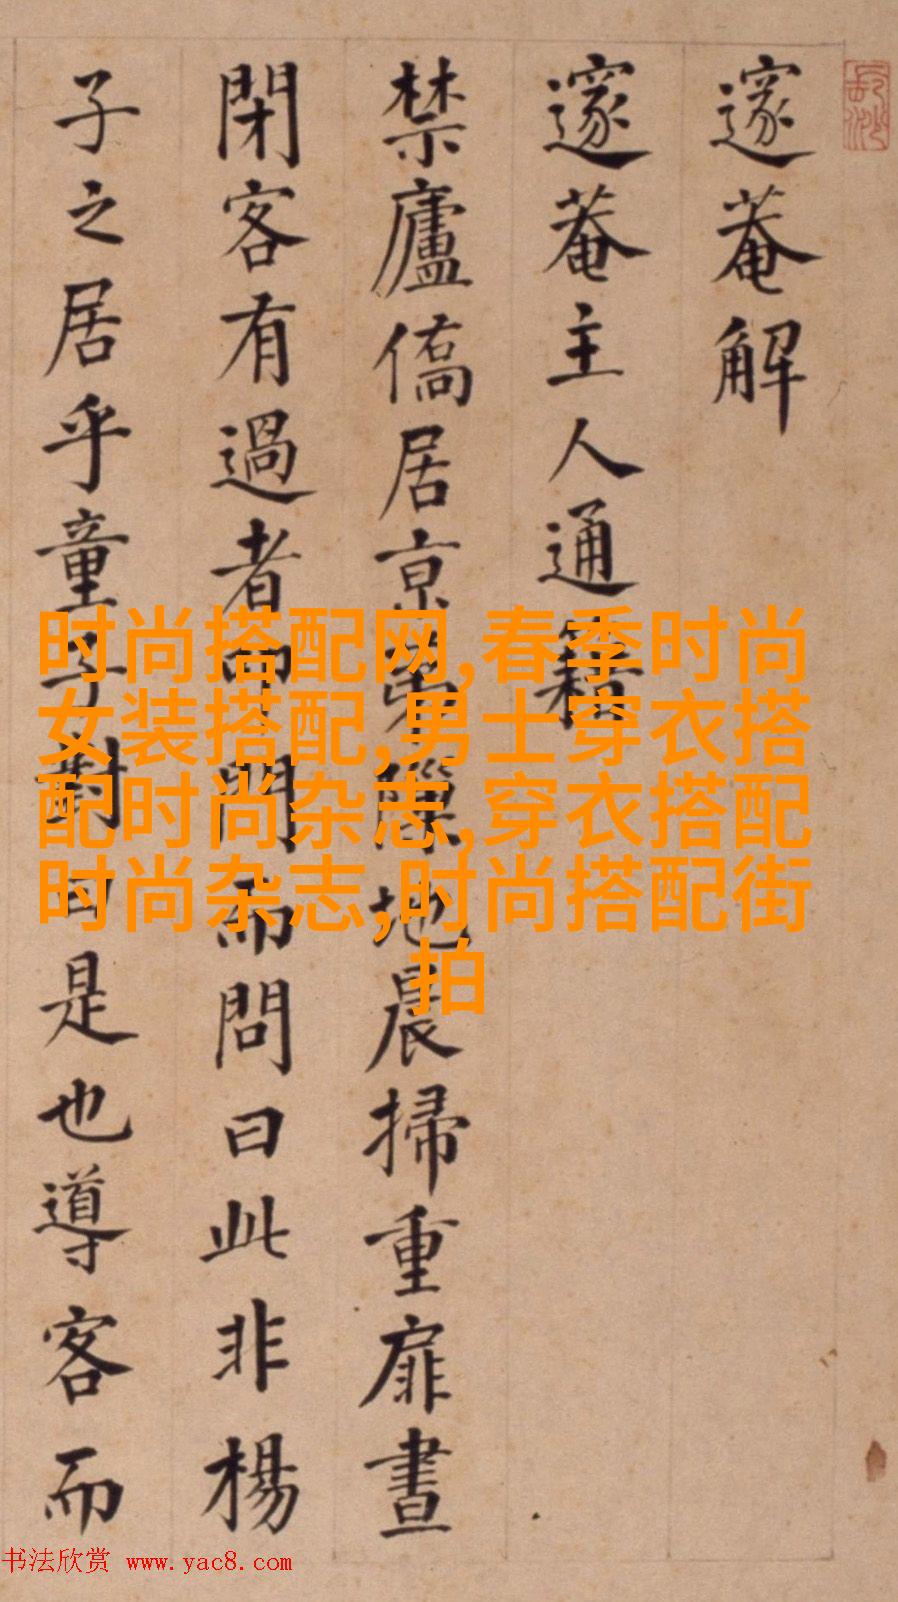 邃菴解
邃菴主人通籍
禁廬僑居京第隟地晨掃重扉晝
閉客有過者叩門而問曰此非楊
子之居乎童子對曰是也導客而
时尚搭配网,春季时尚
女装搭配,男士穿衣搭
配时尚杂志,穿衣搭配
时尚杂志,时尚搭配街
拍
书法欣赏 www.yac8.com